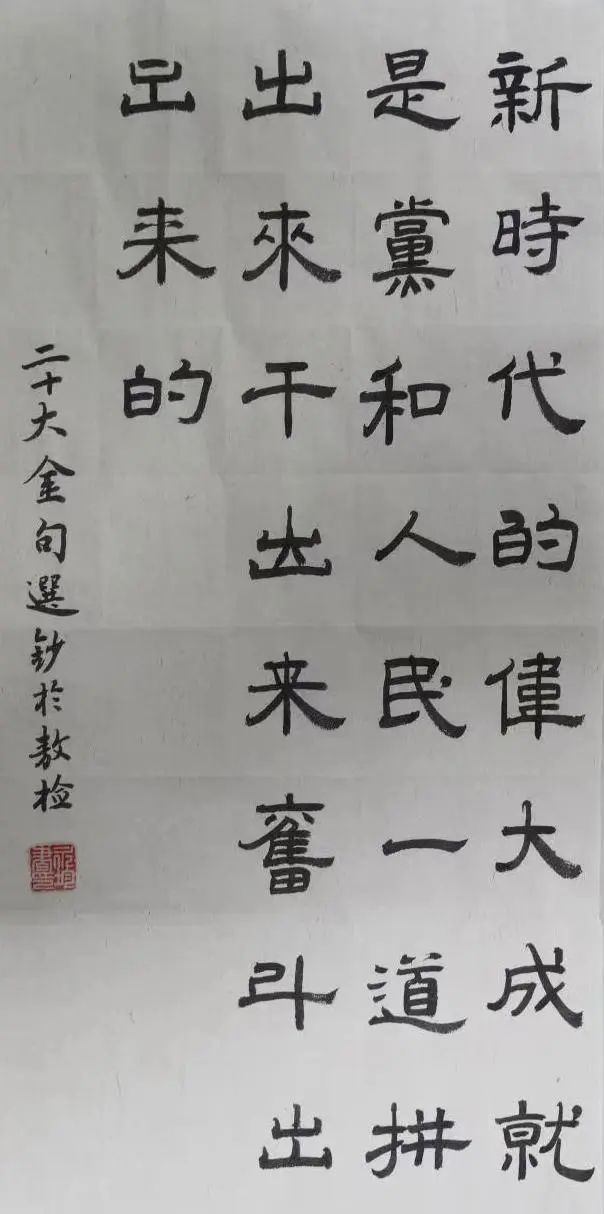 新時代的偉大成就
是黨和人民一道拼
出來干出来奮斗出
出来的
二十大金句選鈔於敖检